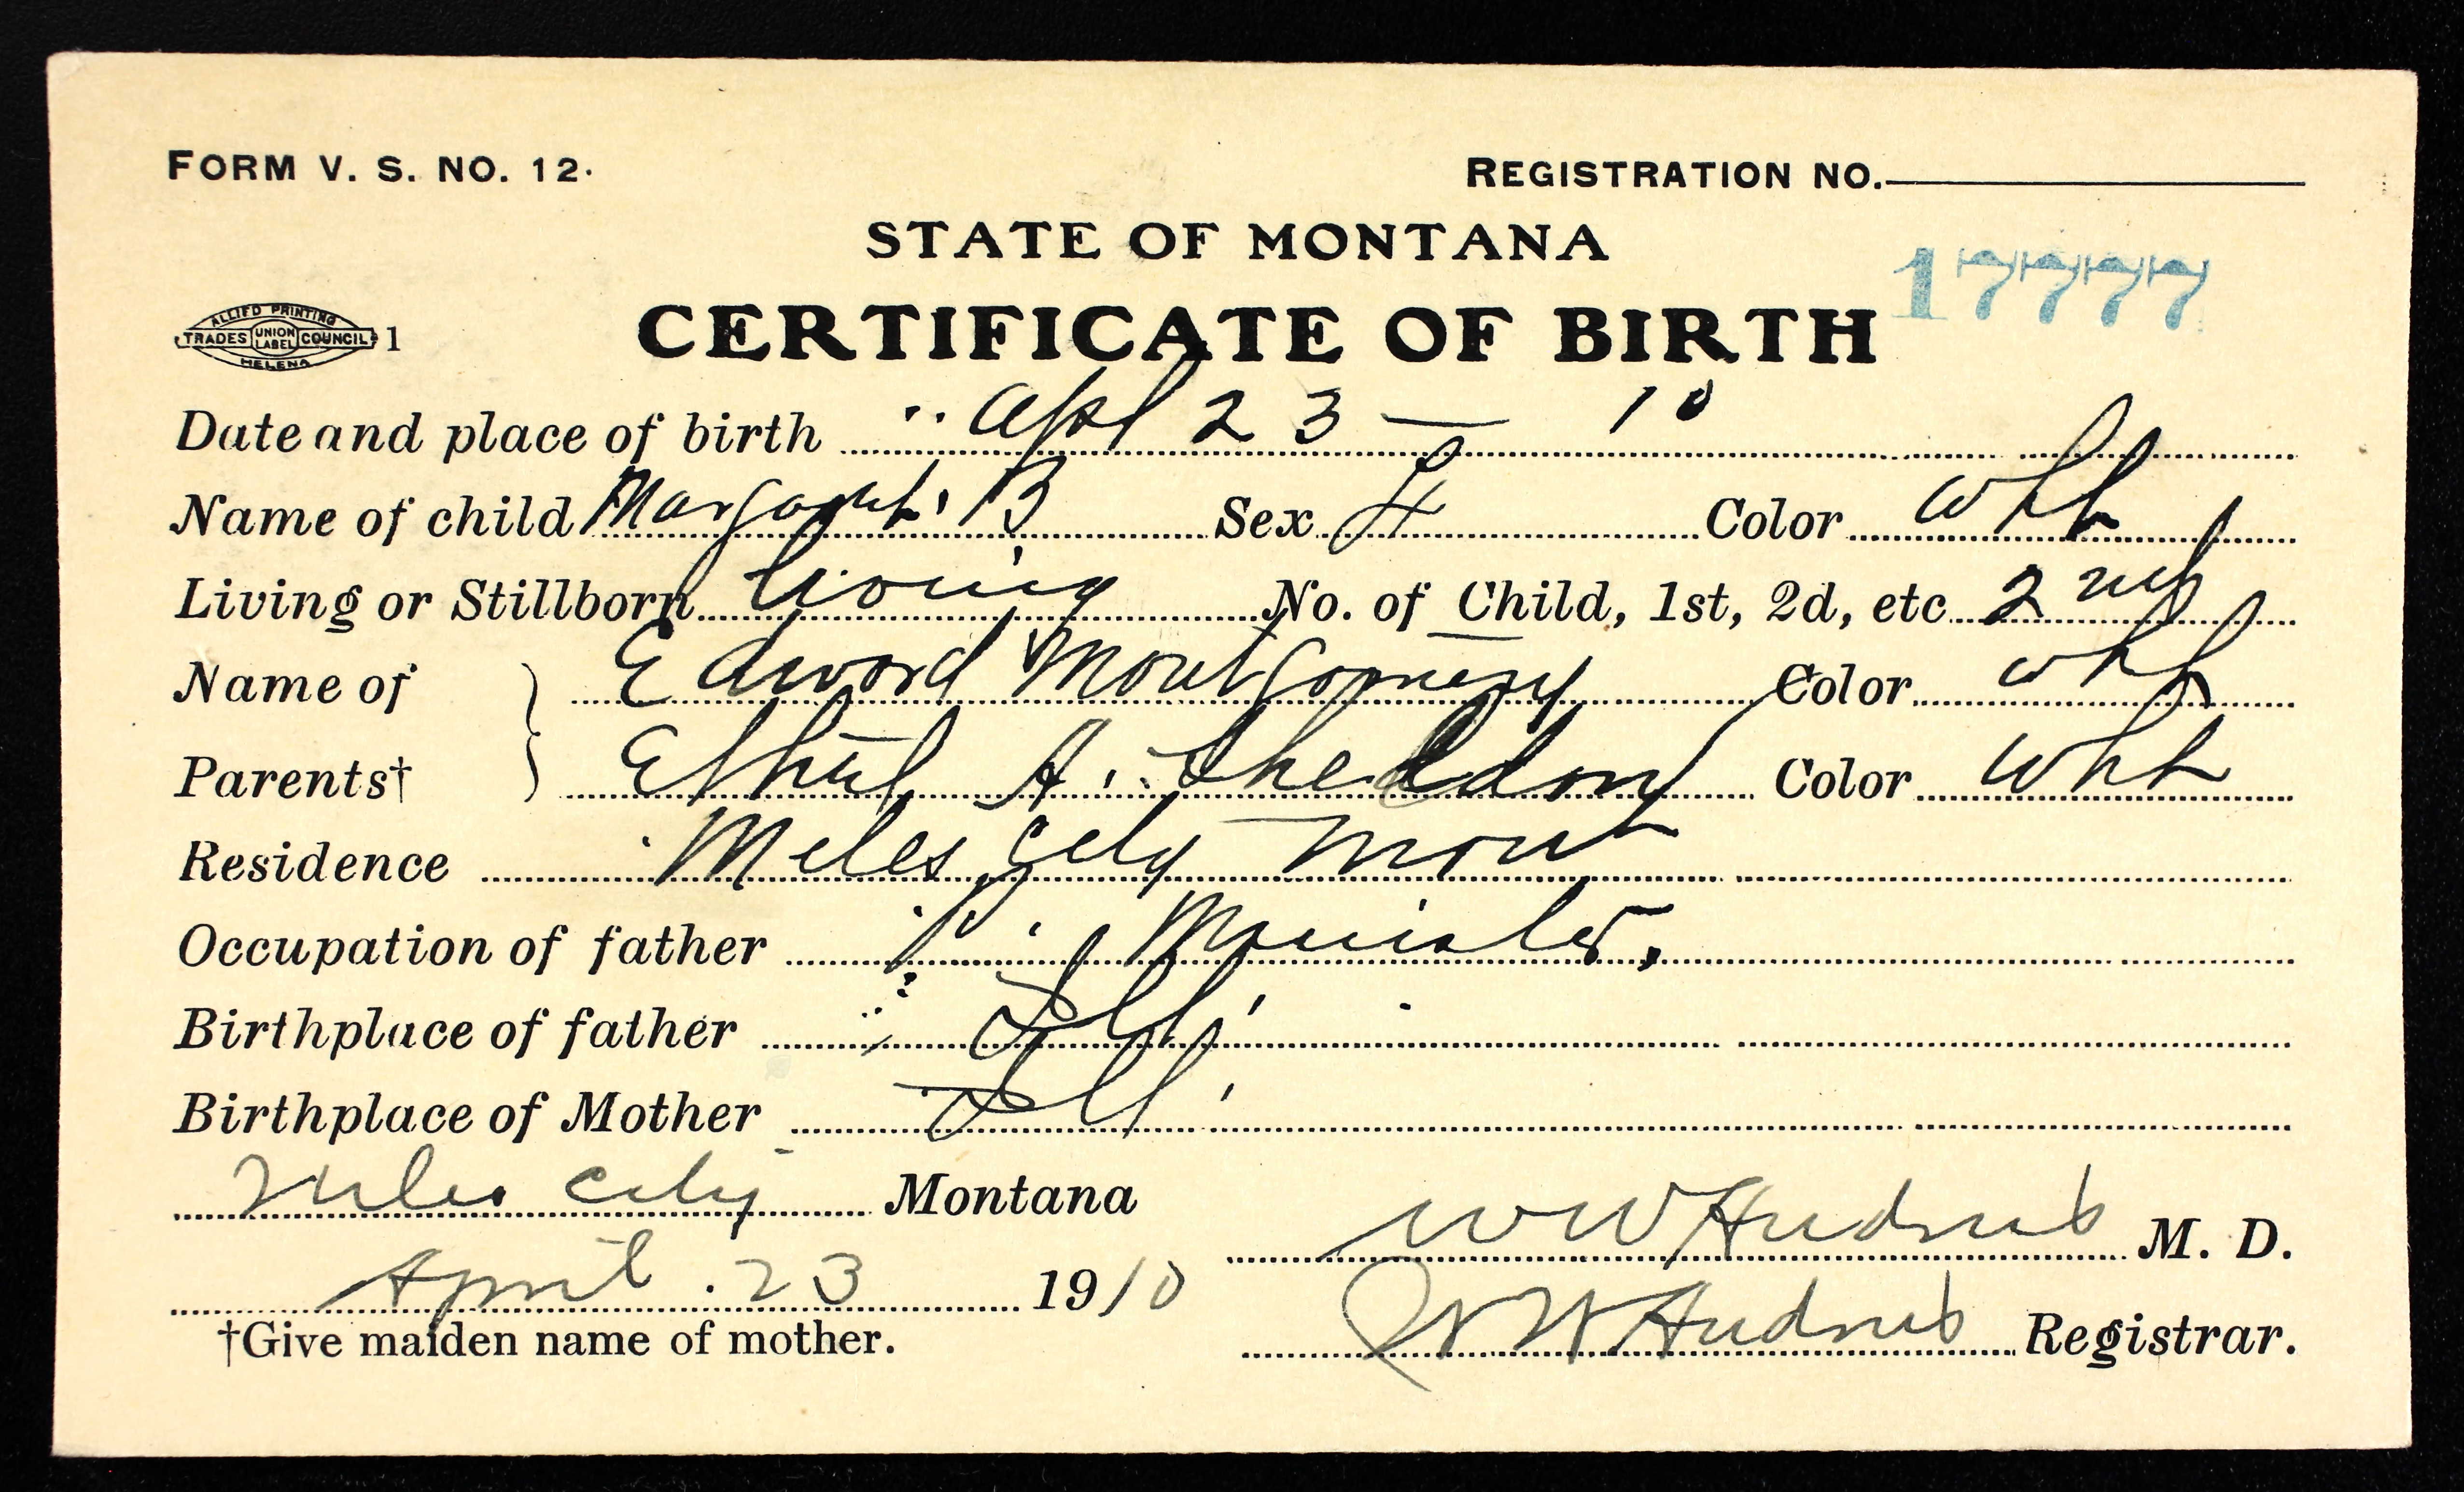 FORM V. S. NO. 12. REGISTRATION NO.
STATE OF MONTANA
17777
ALLIED PRINTING
TRADES UNION LABEL COUNCIL 1
HELENA
CERTIFICATE OF BIRTH
Date and place of birth Apl 23 — 10
Name of child Margaret B Sex F Color Wht
Living or Stillborn living No. of Child, 1st, 2d, etc 2nd
Name of Edward Montgomery Color wht
Parents† Ethel A. Sheldon Color Wht
Residence Miles City Mont
Occupation of father Minister,
Birthplace of father Ill.
Birthplace of Mother Ill.
Miles City Montana
W W Andrus M. D.
April. 23 1910
W W Andrus Registrar.
†Give maiden name of mother.